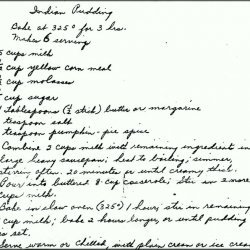 Indian Pudding
Bake at 325° for 3 hrs.
Makes 6 serving
cups milk
cup yellow corn meal
cup molasses
cup sugar
tablespoons (½ stick) butter or margarine
teaspoon salt
teaspoon pumpkin-pie spice
Combine 2 cups milk with remaining ingredients in
large heavy saucepan; heat to boiling; simmer,
stirring often, 20 minutes or until creamy thick.
Pour into buttered 8-cup casserole; stir in 2 more
cups milk.
Bake in slow oven (325°) 1 hour; stir in remaining
cup milk; bake 2 hours longer or until pudding
is set.
Serve warm or chilled, with plain cream or ice cream